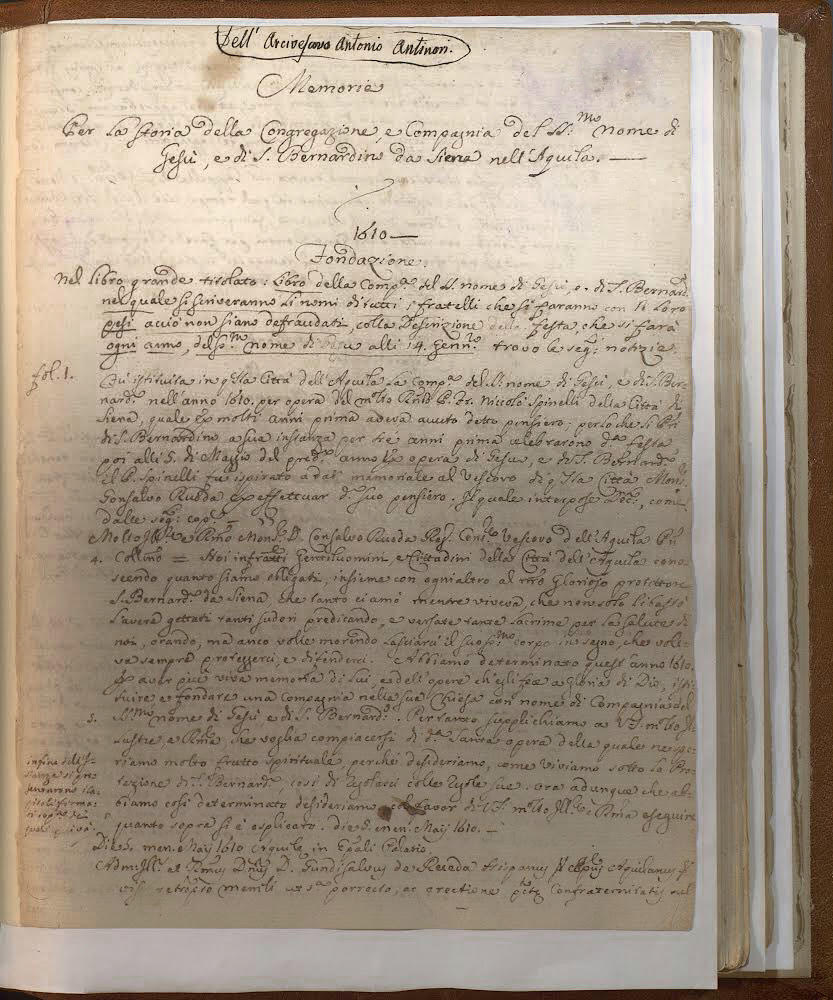 Dell' Arcivescovo Antonio Antinori.
Memorie
Per la storia della Congregazione, e Compagnia del SS.mo nome di
Gesù, e di S. Bernardino da Siena nell'Aquila. —
1610 —
Fondazione.
Nel libro grande titolato: libro della Comp.a del SS. nome di Gesù, e di S. Bernard.
nel quale si scriveranno li nomi di tutti i fratelli che si faranno con li loro
pesi acciò non siano defraudati, colla Descrizione della festa, che si farà
ogni anno, del SS.mo nome di Gesù alli 14. Genn.o trovo le seg.ti notizie.
fol. 1.
Fu istituita in q.sta Città dell'Aquila la Comp.a del SS. nome di Gesù, e di S. Ber-
nard.o nell'anno 1610. per opera del m.lto Rnd. P. Fr. Niccolò Spinelli della Città di
Siena, quale molti anni prima aveva avuto detto pensiero; perloche li PP.ri
di S. Bernardino a sua instanza per tre anni prima celebrarono d.ta festa
poi alli 5. di Maggio del pred.o anno opera di Gesù, e di S. Bernard.o
el P. Spinelli fu ispirato a dar memoriale al Vescovo di q.sta Città Mons.r
Gonsalvo Rueda effettuar d.o suo pensiero. Il quale interpose come
dalle seg.ti
Molto Ill.re e Rmo Mons.r D. Consalvo Rueda Reg. Cons.ro Vescovo dell'Aquila
4. Noi infratti Gentiluomini, e Cittadini della Città dell'Aquila cono-
scendo quanto siamo obligati, insieme con ogni altro al nro Glorioso protettore
S. Bernard.o da Siena che tanto ci amò mentre viveva, che non solo li bastò
l'avera gettati tanti sudori predicando, e versate tante lacrime per la salute di
noi, orando, ma anco volle morendo lasciarci il suo SS.mo corpo in segno, che vole-
va sempre proteggerci, e difenderci. Abbiamo determinato quest'anno 1610.
aver più viva memoria di lui, e dell'opere ch'egli fece a gloria di Dio, isti-
tuire e fondare una Compagnia nella sua Chiesa con nome di Compagnia del
5. SS.mo nome di Gesù e di S. Bernard.o. Pertanto supplichiamo a V.S. m.lto Il-
lustre, e Rma, che voglia compiacersi di d.ta Santa opera della quale ne spe-
riamo molto frutto spirituale, perché desideriamo, come viviamo sotto la Pro-
tezione di S. Bernard.o così di
infine
biamo così determinato desideriamo favor di V.S. m.lto Ill.re, e Rma eseguire
quanto sopra si è esplicato. die 5. men. Maij 1610. —
Die 5. men. Maij 1610 Aquile in Palatio.
Adm. Ill. et D. Gundisalvus de Rueda Hispanus Aquilanus
porrecto, ac erectione Confraternitatis sub